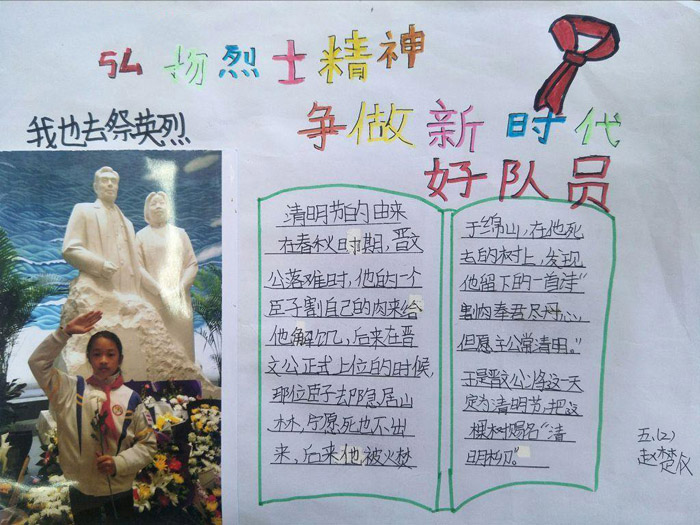 弘扬烈士精神
争做新时代
好队员
我也去祭英烈
清明节的由来
在春秋时期，晋文
公落难时，他的一个
臣子割自己的肉来给
他解饥，后来在晋
文公正式上位的时候，
那位臣子却隐居山
林，宁愿死也不出
来，后来他被火焚
于绵山，在他死
去的树上，发现
他留下的一首诗“
割肉奉君尽丹心，
但愿主公常清明。”
于是晋文公将这一天
定为清明节，把这
棵树赐名“清
明柳”
五.(2)
赵楚仪